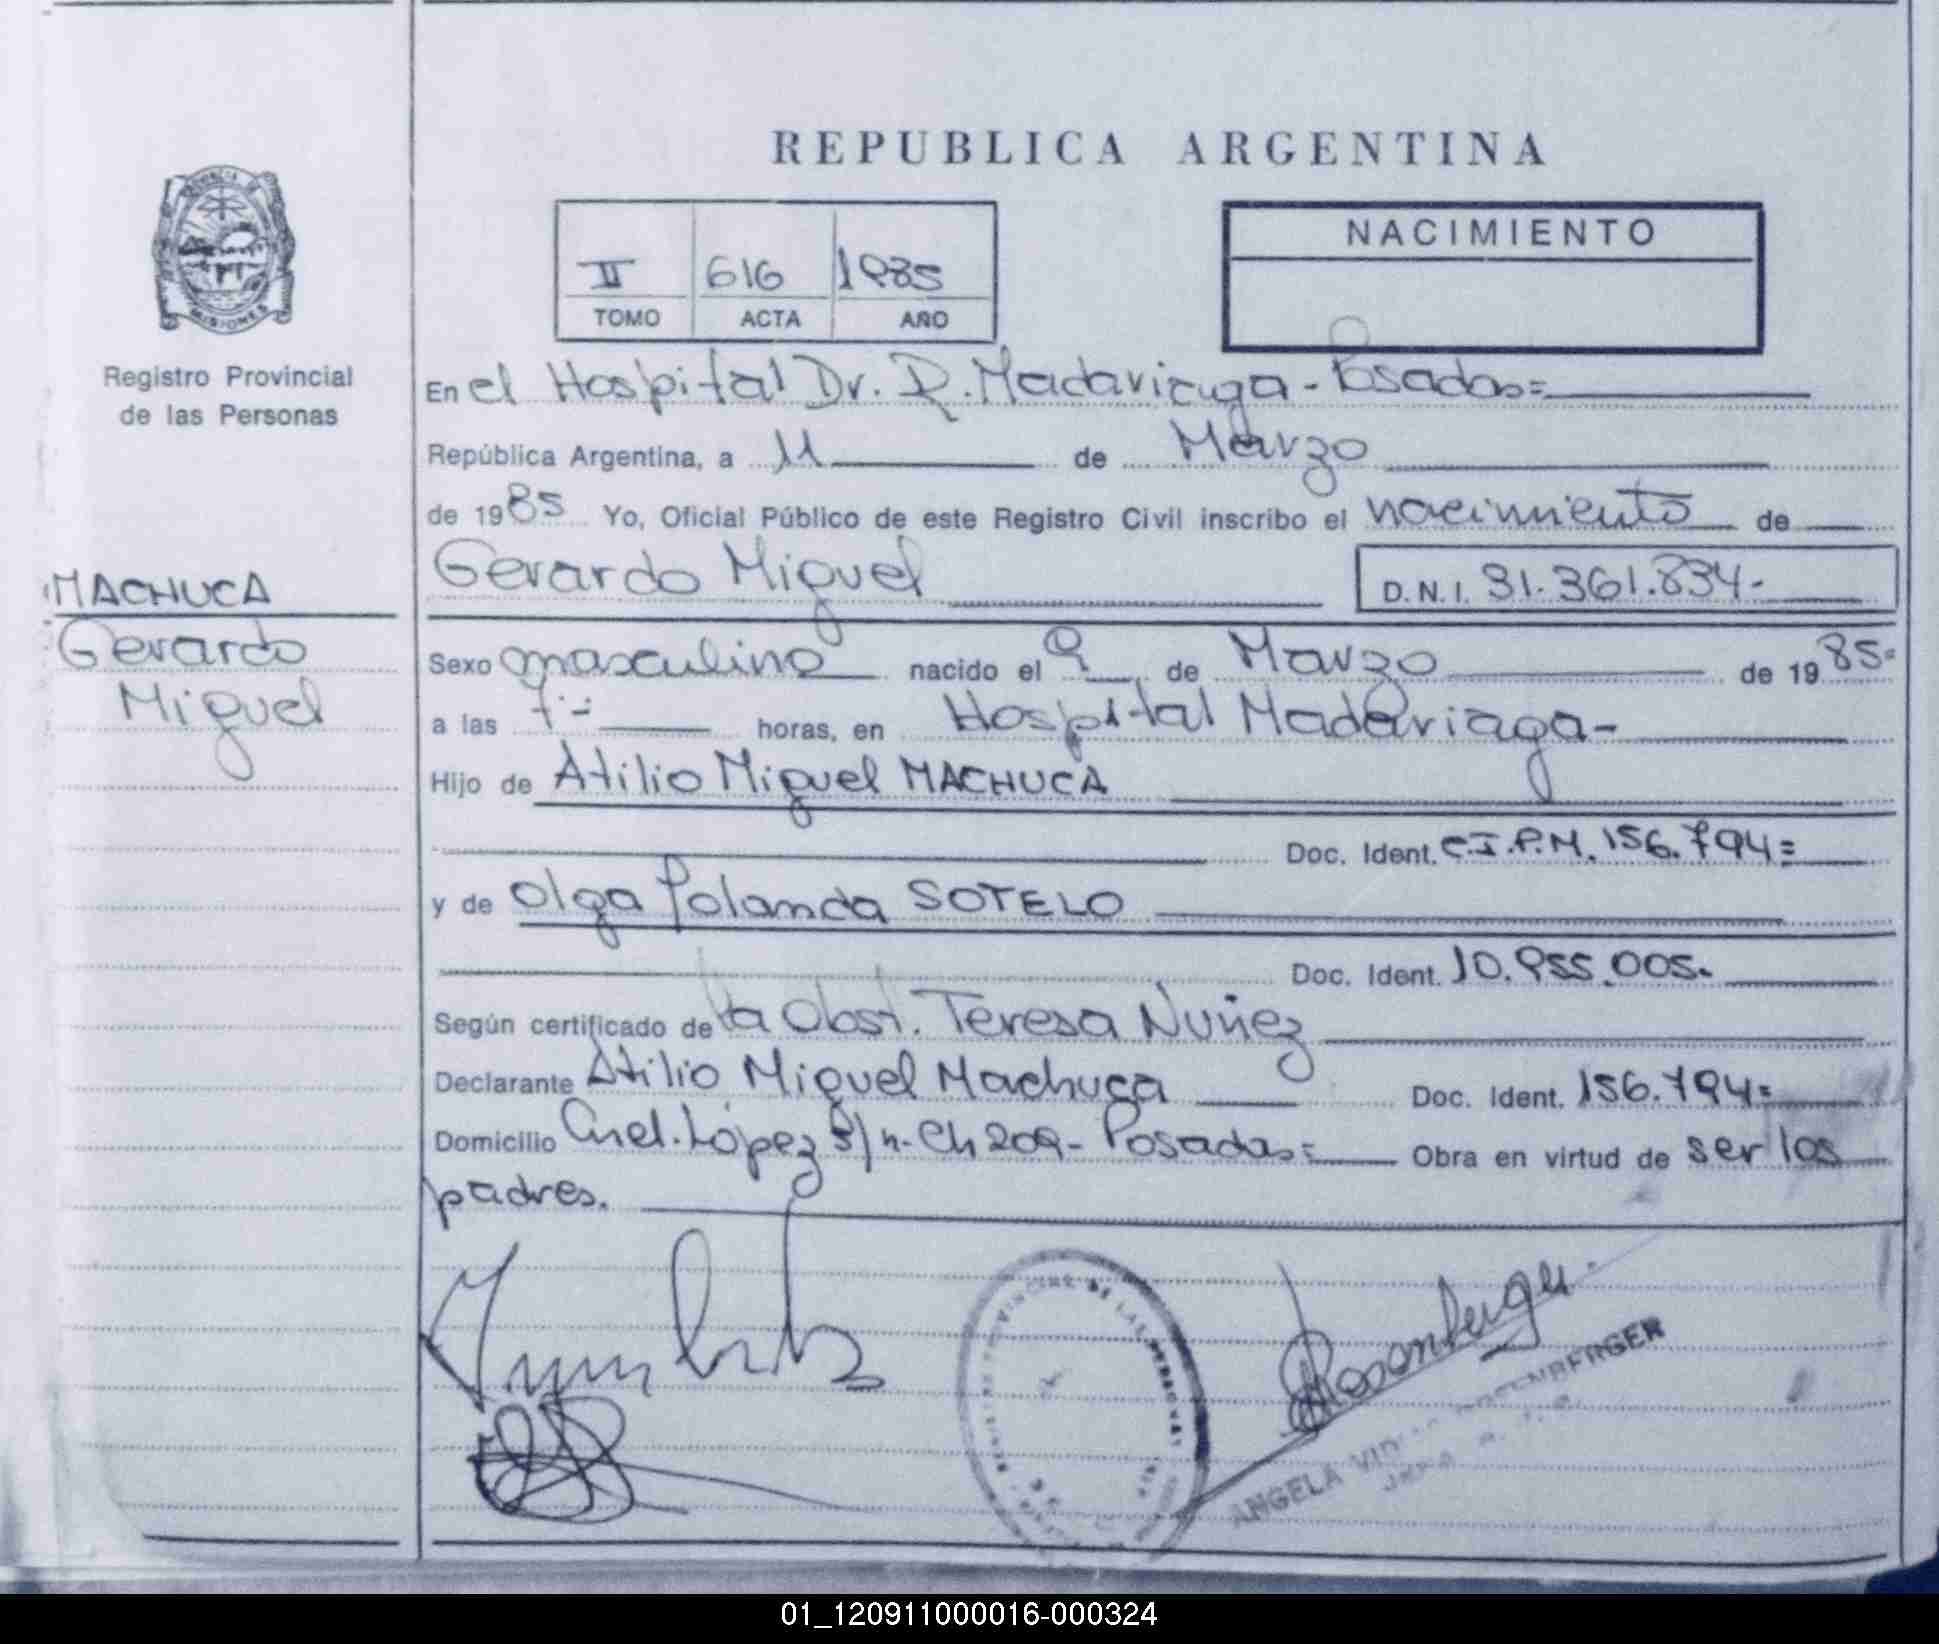 REPUBLICA ARGENTINA
PROVINCIA DE
MISIONES
Registro Provincial
de las Personas
II 616 1985
TOMO ACTA AÑO
NACIMIENTO
En el Hospital Dr. R. Madariaga - Posadas=
República Argentina, a 11 de Marzo
de 1985 Yo, Oficial Público de este Registro Civil inscribo el nacimiento de
Gerardo Miguel D.N.I. 31.361.834-
MACHUCA
Gerardo
Miguel
Sexo masculino nacido el 9 de Marzo de 1985=
a las 7- horas, en Hospital Madariaga-
Hijo de Atilio Miguel MACHUCA
Doc. Ident. C.I.P.M. 156.794=
y de Olga Yolanda SOTELO
Doc. Ident. 10.955.005-
Según certificado de la Obst. Teresa Nuñez
Declarante Atilio Miguel Machuca Doc. Ident. 156.794=
Domicilio Cnel. López S/n. Ch 209- Posadas= Obra en virtud de ser los
padres.
DE LAS PERSONAS
Rosenberger
ANGELA ROSENBERGER
01_120911000016-000324